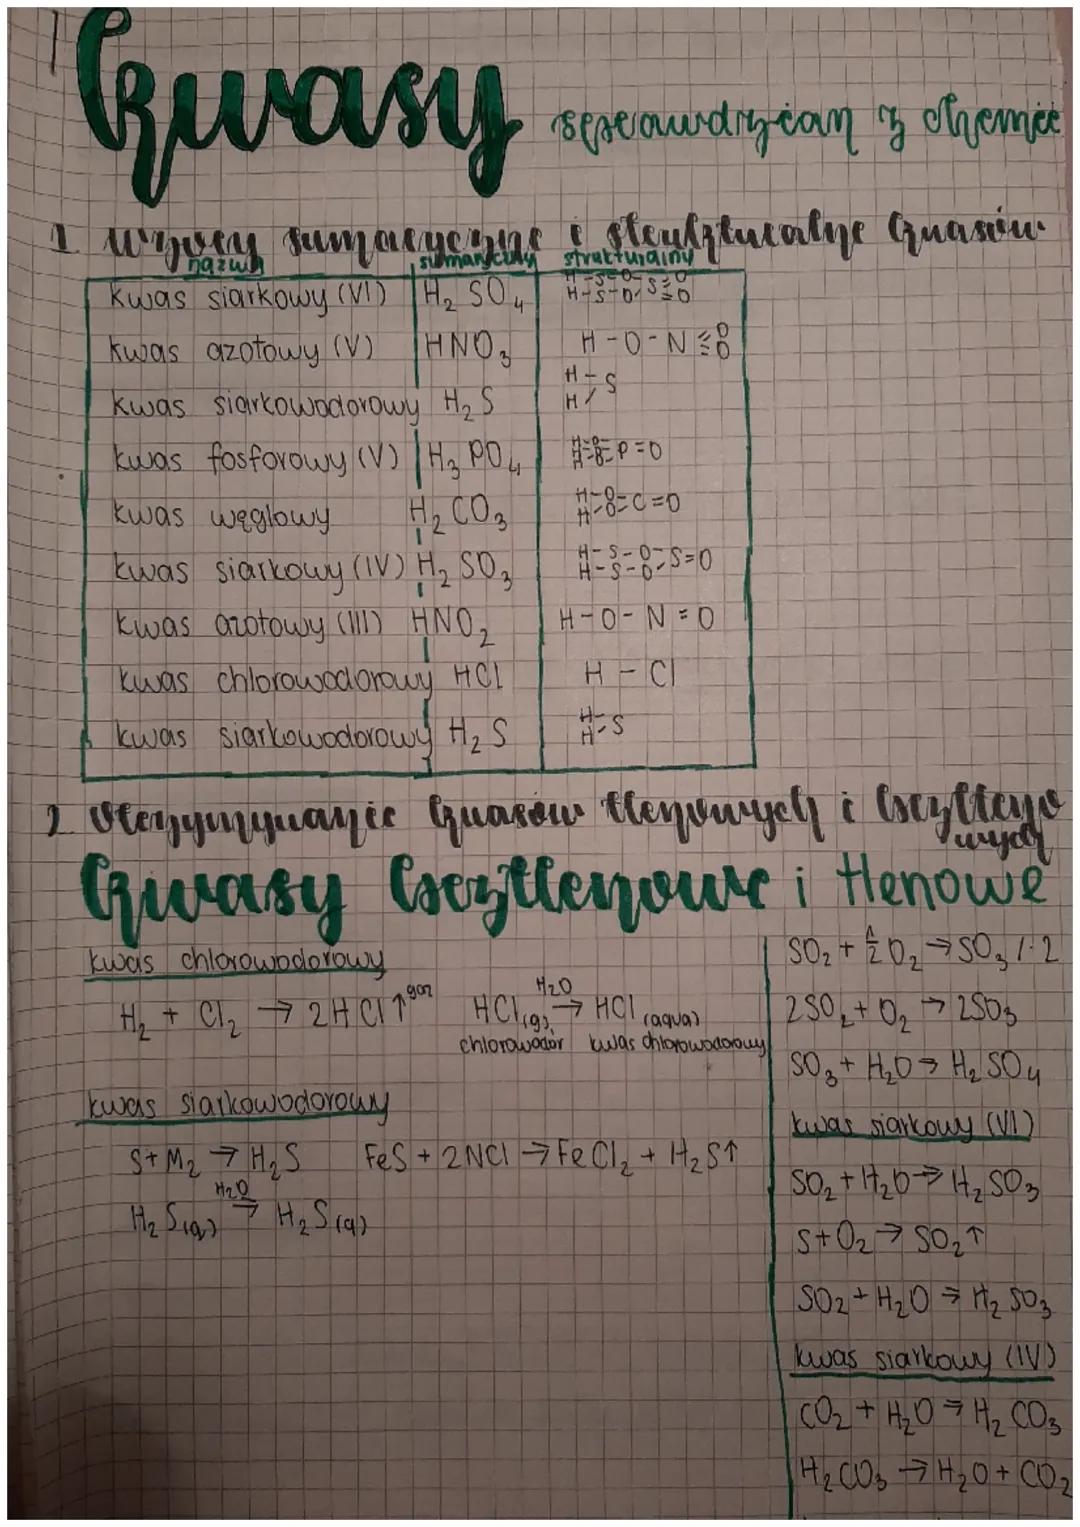 Kwasy sprawdzian z chemii
1 Wzory sumaryczne i strukturalne kwasów
nazwa sumaryczny strukturalny
kwas siarkowy (VI) H₂SO₄
kwas azotowy (V) HNO₃ H-O-N O O
kwas siarkowodorowy H₂S H-S H/
kwas fosforowy (V) H₃PO₄ P=O
kwas węglowy H₂CO₃ H-O H-O C=O
kwas siarkowy (IV) H₂SO₃ H-S-O-S=O H-S-O-
kwas azotowy (III) HNO₂ H-O-N=O
kwas chlorowodorowy HCl H-Cl
kwas siarkowodorowy H₂S H-S H-
2 Otrzymywanie kwasów tlenowych i beztlenowych
Kwasy beztlenowe i tlenowe
kwas chlorowodorowy
H₂ + Cl₂ → 2HCl↑ gaz
HCl(g) H₂O→ HCl (aqua)
chlorowodór kwas chlorowodorowy
kwas siarkowodorowy
S+M₂ → H₂S FeS + 2NCl → FeCl₂ + H₂S↑
H₂S(g) H₂O→ H₂S(q)
SO₂ + ½O₂ → SO₃ /·2
2SO₂ + O₂ → 2SO₃
SO₃ + H₂O → H₂SO₄
kwas siarkowy (VI)
SO₂ + H₂O → H₂SO₃
S+O₂ → SO₂↑
SO₂ + H₂O → H₂SO₃
kwas siarkowy (IV)
CO₂ + H₂O → H₂CO₃
H₂CO₃ → H₂O + CO₂